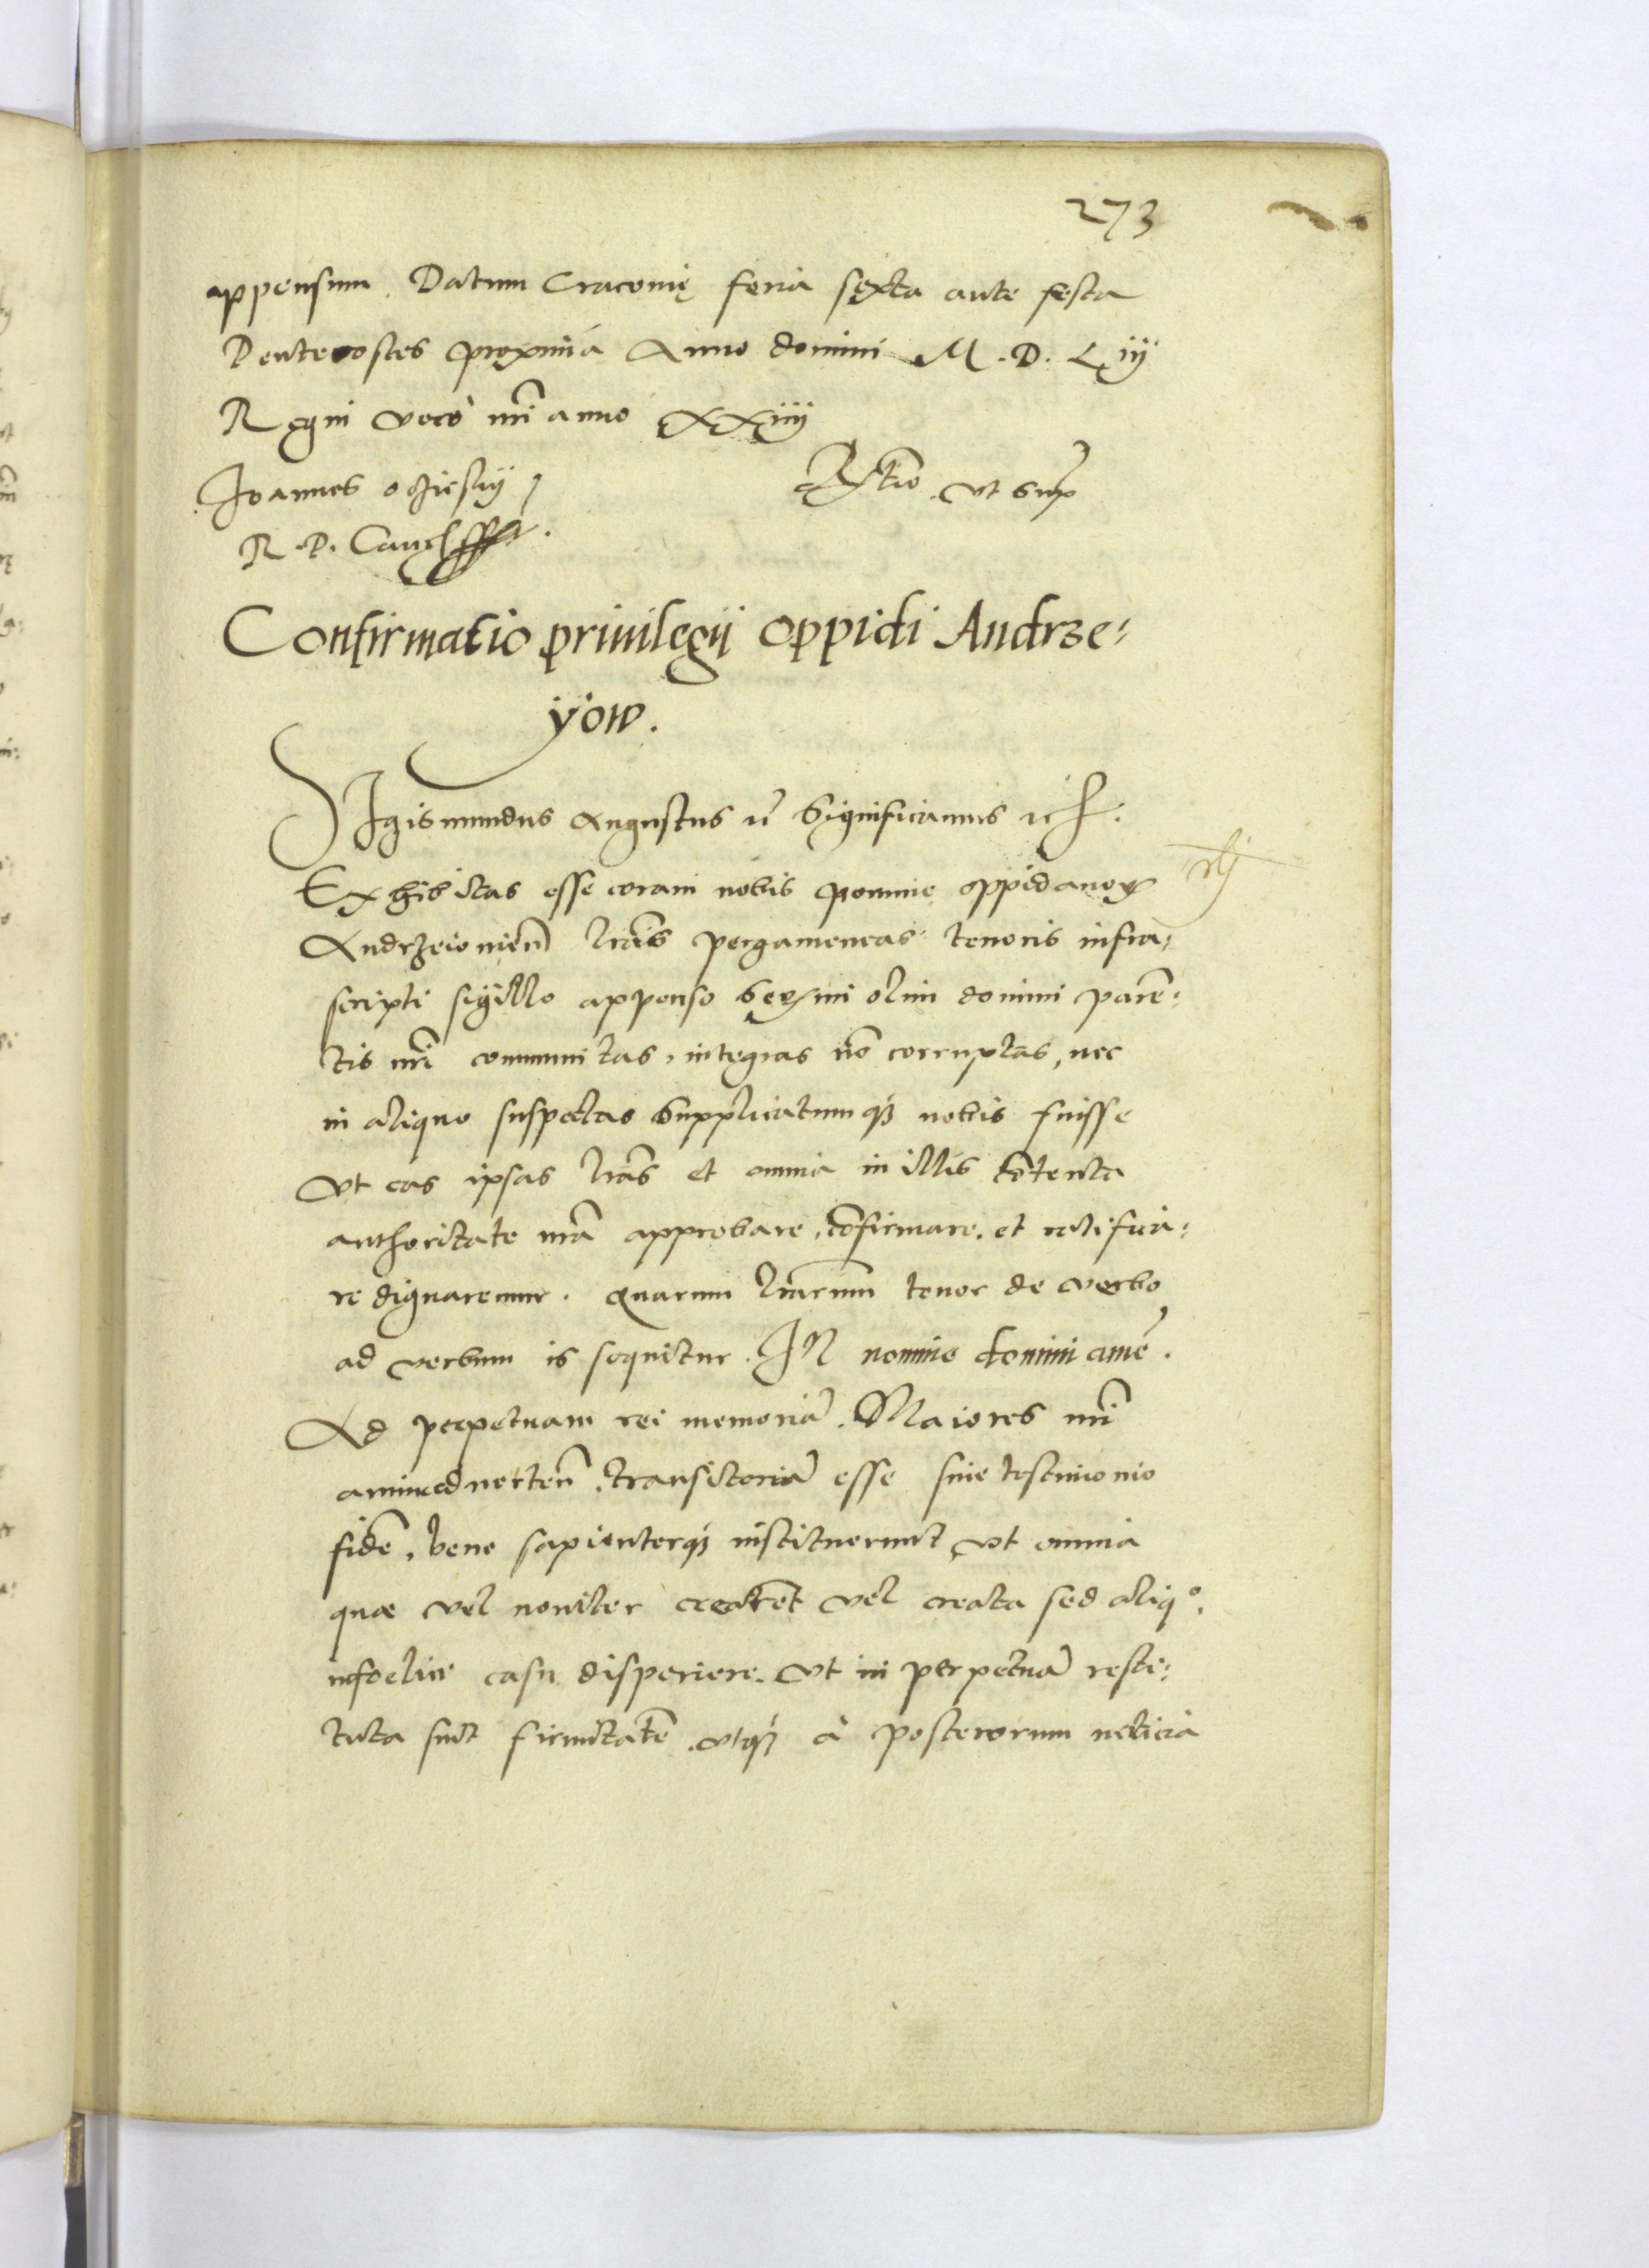 273
appensum. Datum Cracovię feria sexta ante festa
Pentecostes proxima Anno domini M. D. Liij
Regni vero nrī anno XXiiij
Joannes Ocziesky Rtio. ut supr̄
R. P. Cancells
Confirmatio priuilegij oppidi Andrze:
yow.
Sigismundus Augustus zc̄ Significamus zc
Exhibitas esse coram nobis nomine oppidanorꝝ
Andrzeiouien̄ lrās pergameneas tenoris infra:
scripti sigillo appenso serꝫmi olim domini paren̄:
tis nrī communitas, integras nō corruptas, nec
in aliquo suspectas supplicatumqꝫ nobis fuisse
Vt eas ipsas lrās et omnia in illis cōtenta
authoritate nrā approbare, cōfirmare. et ratifica:
re dignaremur. Quarum lrārum tenor de verbo
ad verbum is sequitur. IN nomine domini amē.
Ad perpetuam rei memoriā. Maiores nrī
animaduerten̄. transitoriā esse sine testimonio
fidē, bene sapienterqꝫ instituerunt, vt omnia
quae vel nouiter crearēt vel creata sed aliqº.
infoelici casu disperiere. vt in perpetuā resti:
tuta sint firmitatē. vtqꝫ à posterorum noticia